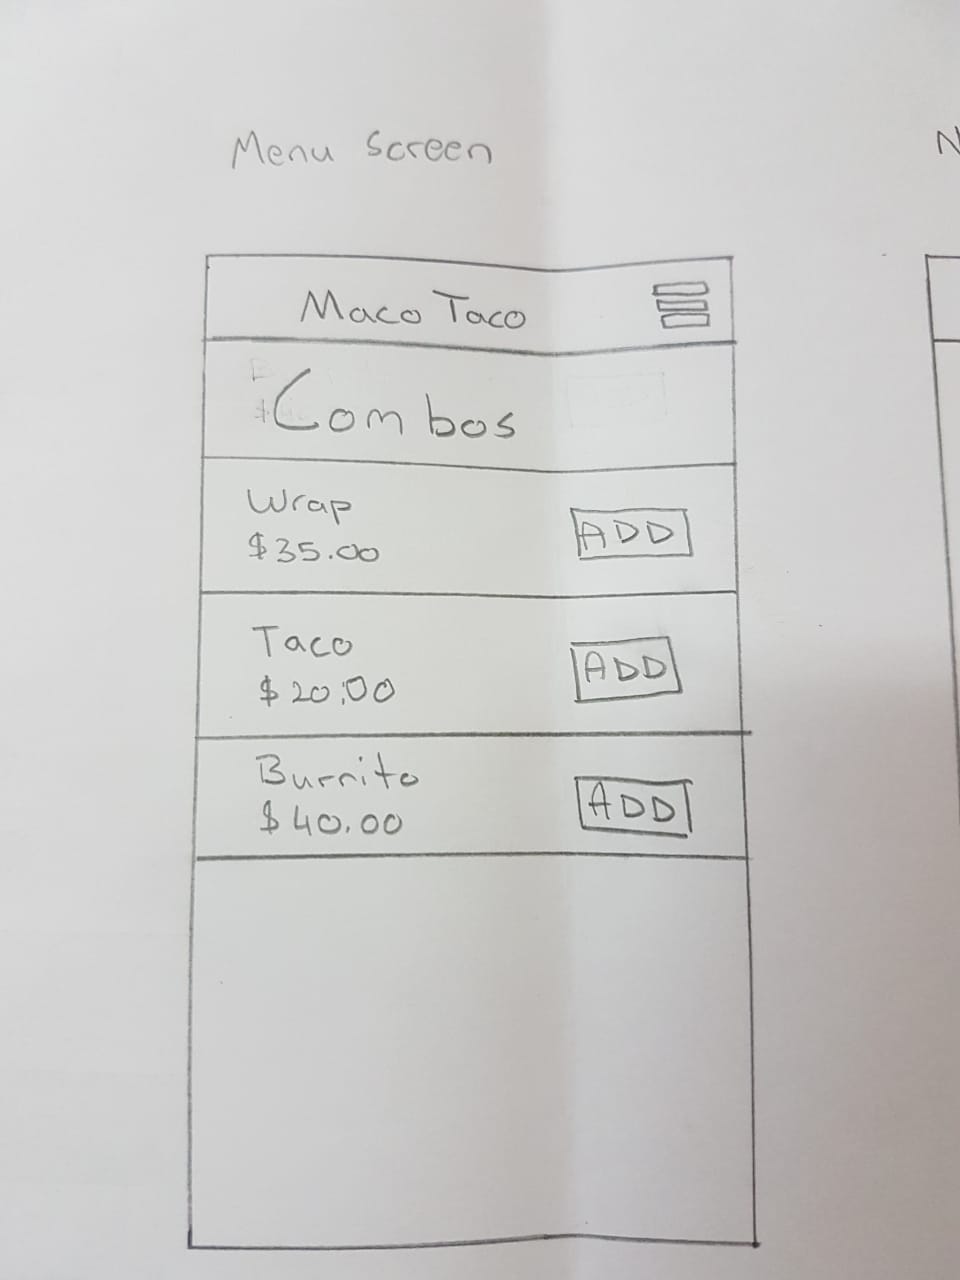 Menu Screen
N
Maco Taco
Combos
Wrap
$35.00
ADD
Taco
$20.00
ADD
Burrito
$40.00
ADD